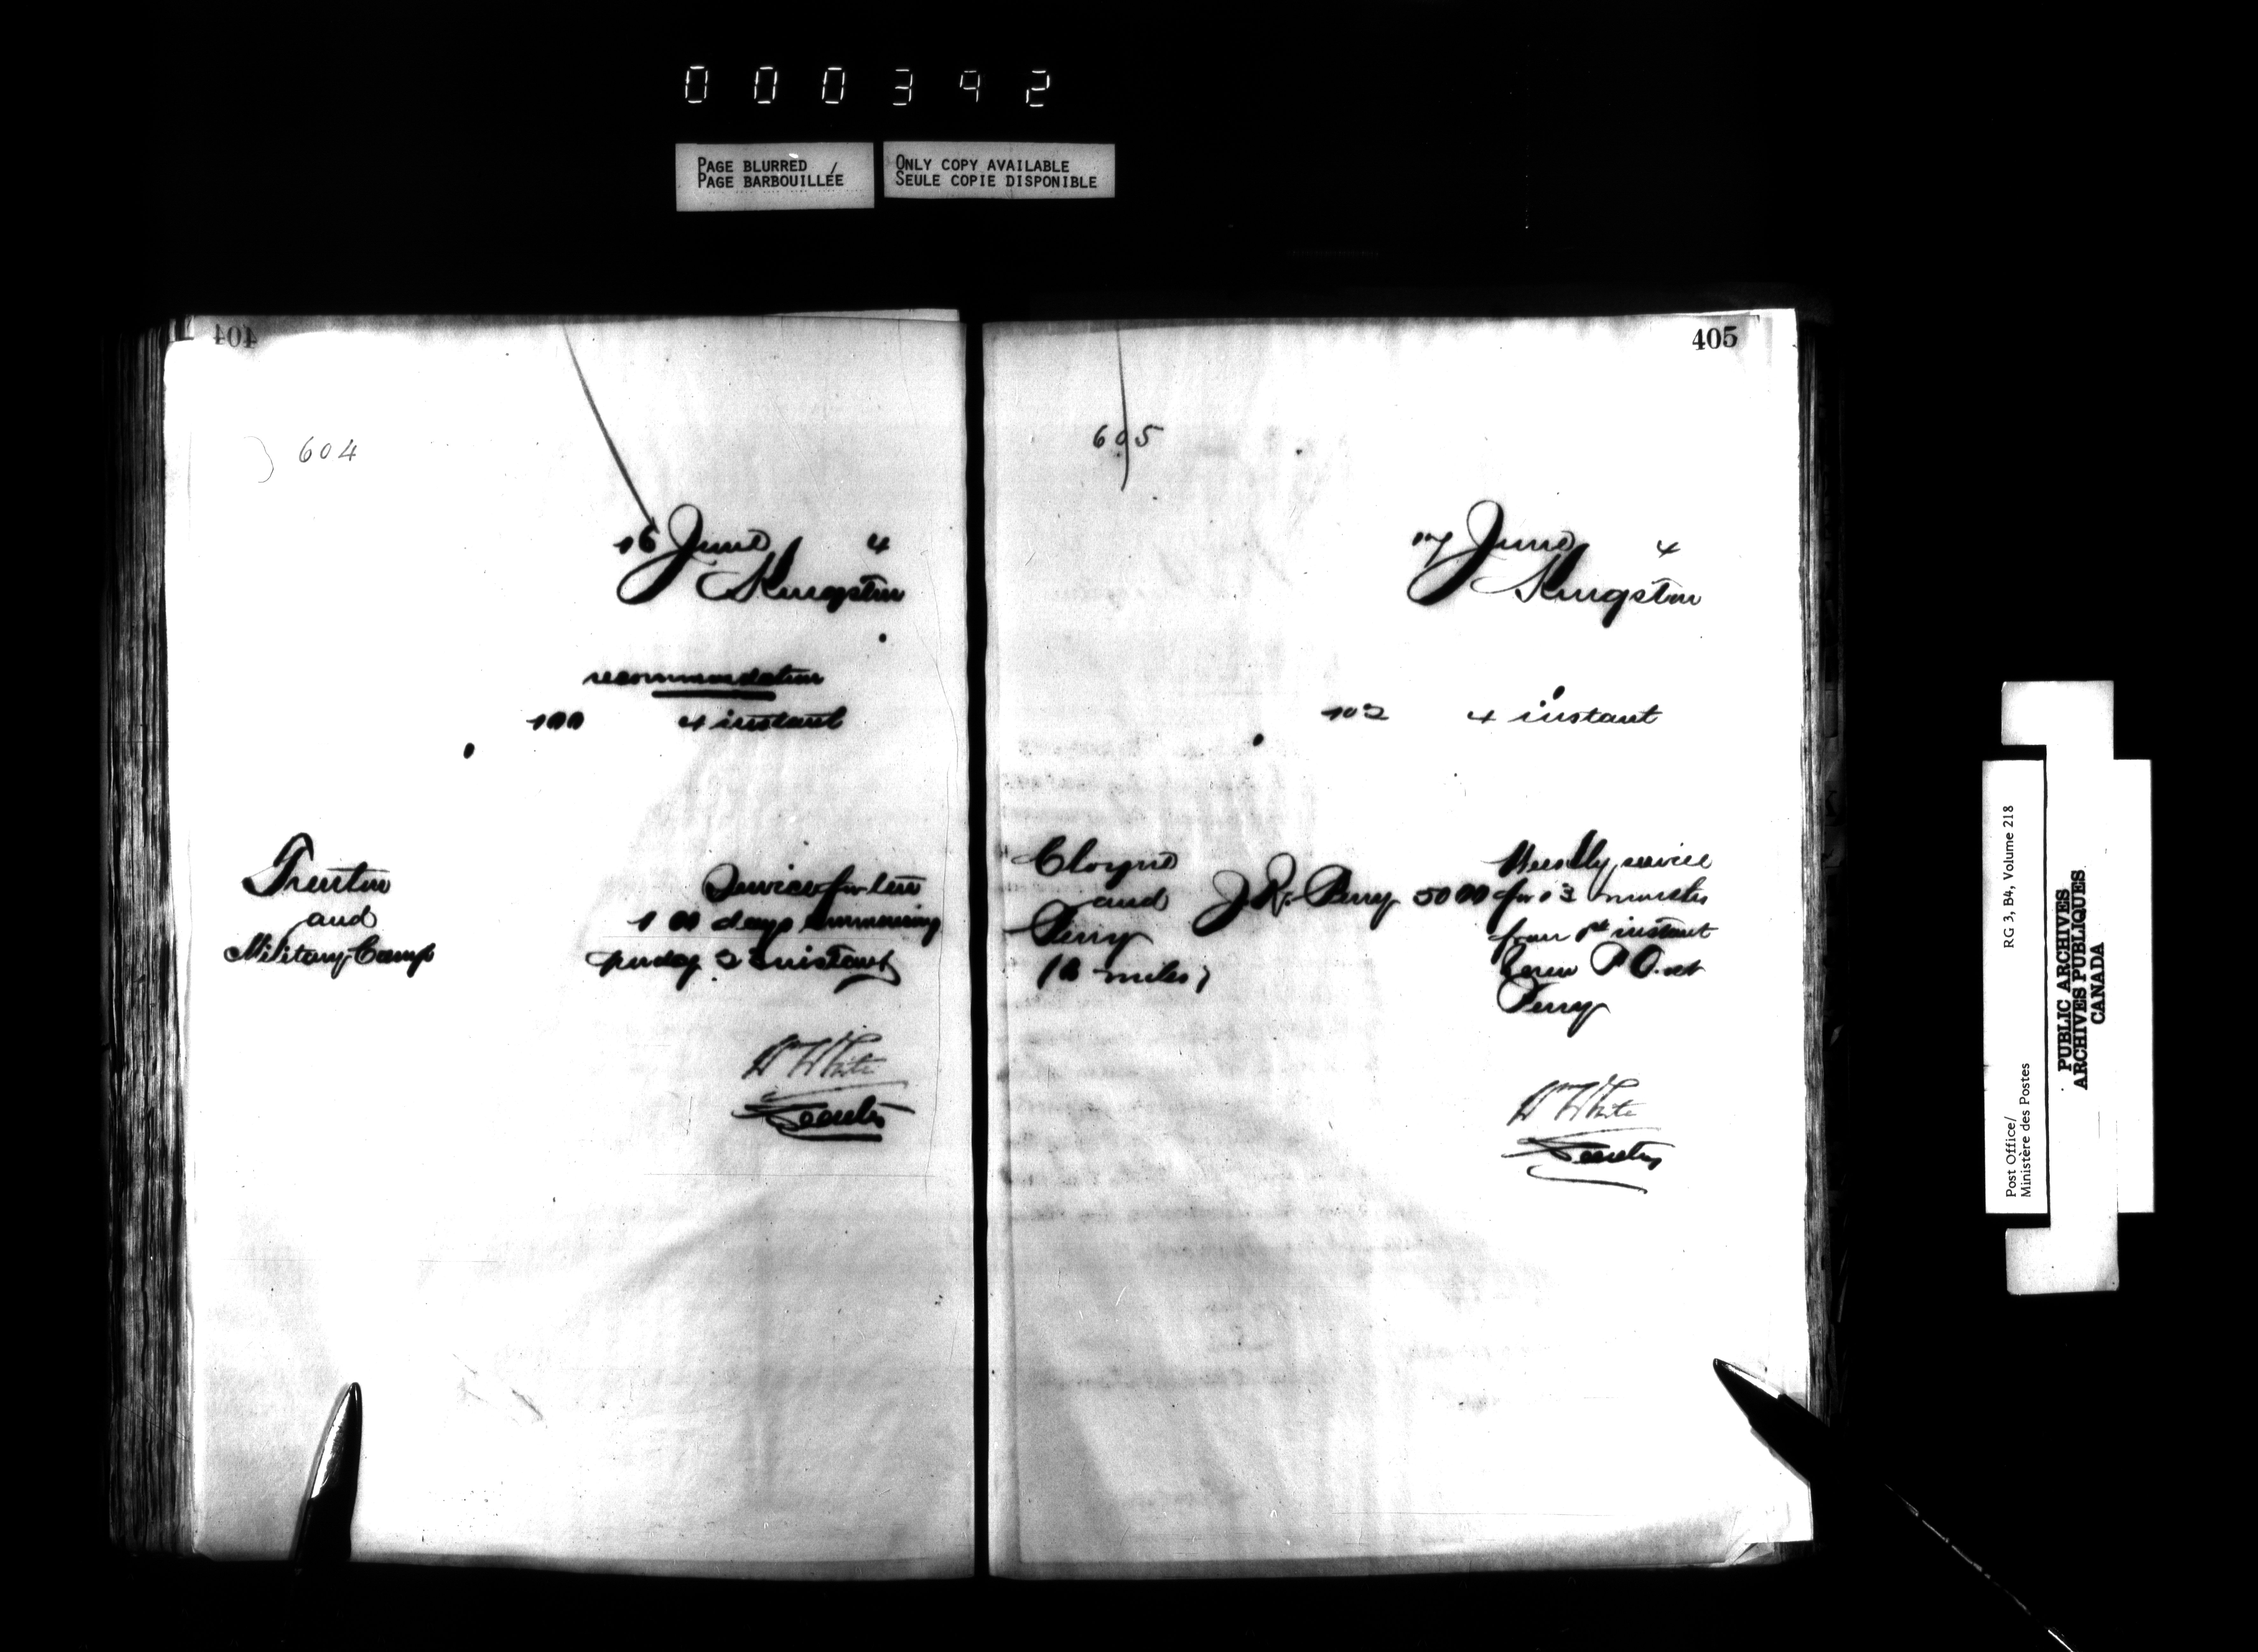 000392
PAGE BLURRED
PAGE BARBOUILLÉE
ONLY COPY AVAILABLE
SEULE COPIE DISPONIBLE
404
604
16 June 4
Kingston
recommendation
100 4 instant
Trenton
and
Military Camp
Service for ten
1 00 days commencing
2 instant
W White
Secretary
405
605
17 June 4
Kingston
102 4 instant
Cloyne
and
Perry
miles)
J. R. Perry 50 00
Weekly service
for 3 months
from 1st instant
new P O. at
Perry
W White
Secretary
Post Office/
Ministère des Postes
RG 3, B4, Volume 218
PUBLIC ARCHIVES
ARCHIVES PUBLIQUES
CANADA